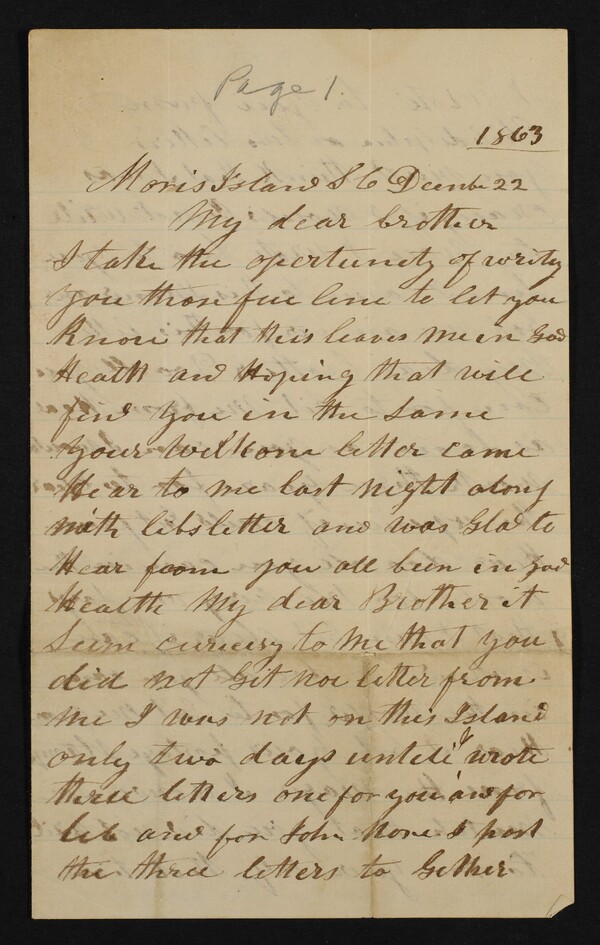 Page 1.
1863
Moris Island S C Decmbe 22
My dear brother
I take the opertunity of writing
you those fue line to let you
know that this leaves me in God
Health and Hoping that will
find you in the same
your wellkome letter came
Hear to me last night along
with libs letter and was Glad to
Hear from you all been in God
Health My dear Brother it
Seem curiusy to me that you
did not Git noe letter from
me I was not on this Island
only two days untill I wrote
three letters one for you and for
lib and for John I post
the three letters to Gether